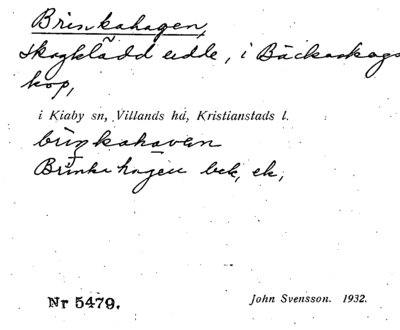 Brinkahagen,
Skogklädd udde, i Bäckaskogs
kop,
i Kiaby sn, Villands hd, Kristianstads l.
bringkahaven
Brinkahagen bek, ek,
Nr 5479.
John Svensson. 1932.